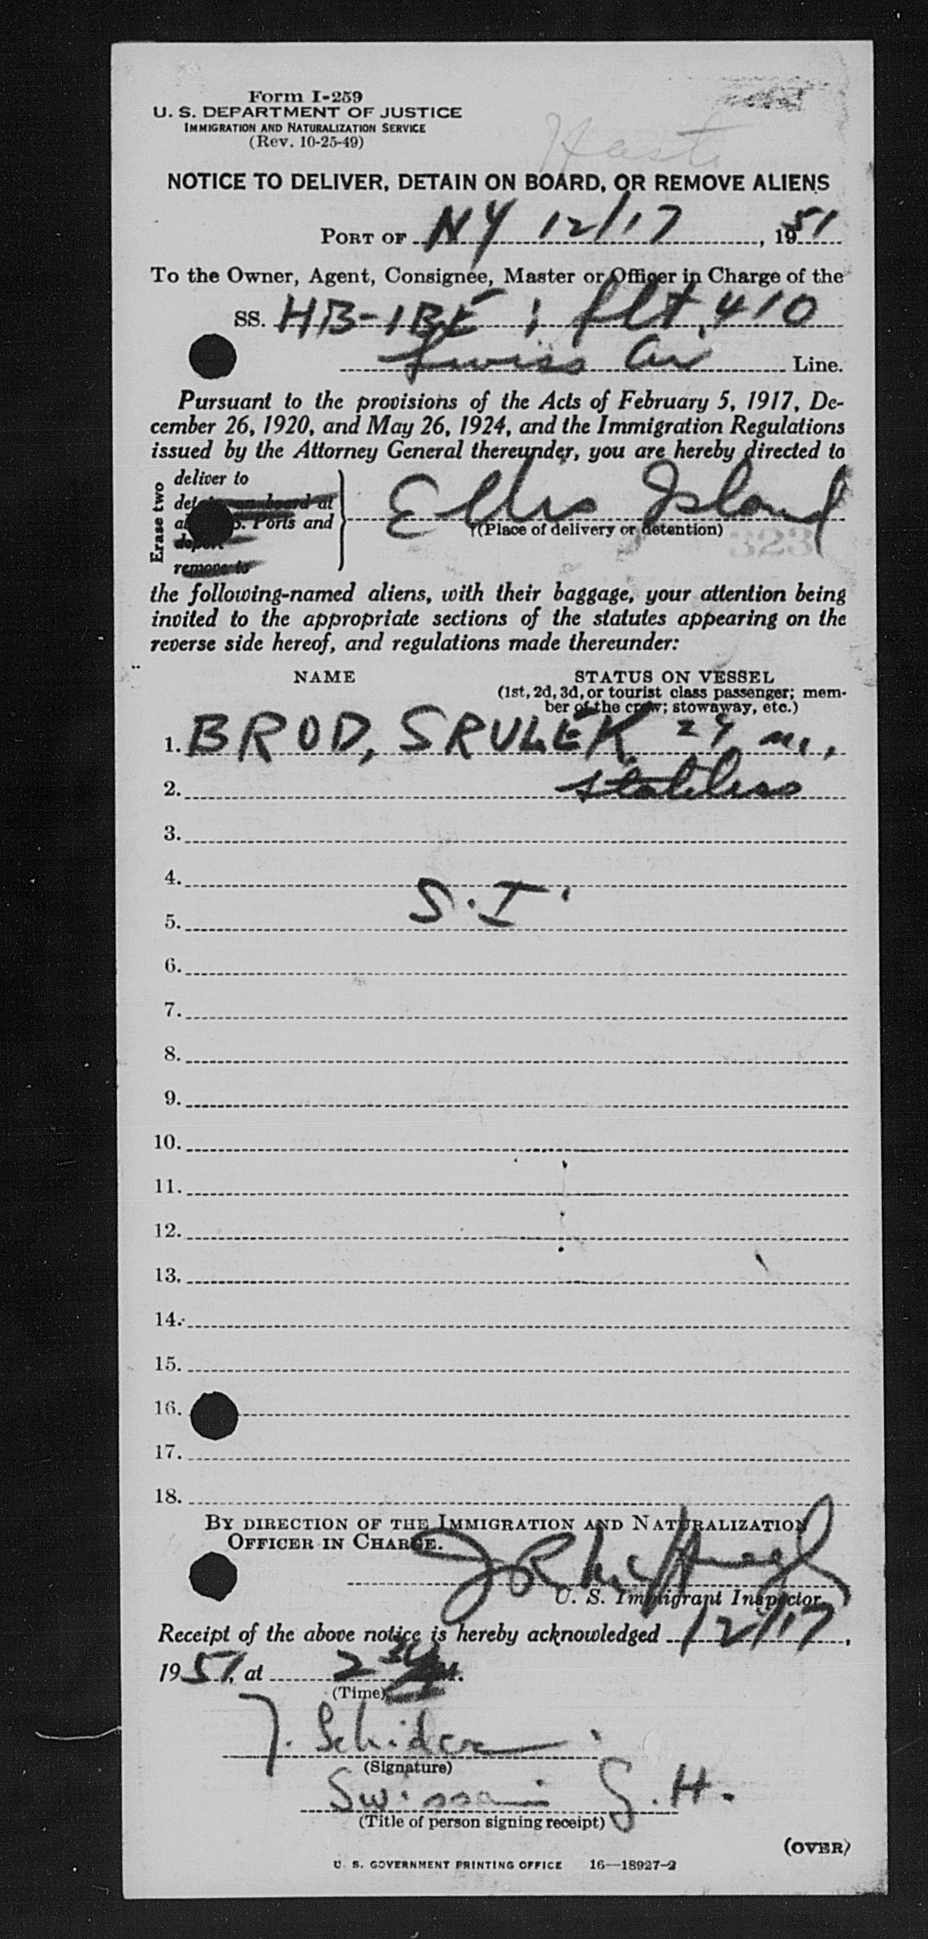 Form I-259
U. S. DEPARTMENT OF JUSTICE
IMMIGRATION AND NATURALIZATION SERVICE
(Rev. 10-25-49)
NOTICE TO DELIVER, DETAIN ON BOARD, OR REMOVE ALIENS
PORT OF NY 12/17, 1951
To the Owner, Agent, Consignee, Master or Officer in Charge of the
SS. HB-IBE ; flt. 410
Swiss Air Line.
Pursuant to the provisions of the Acts of February 5, 1917, De-
cember 26, 1920, and May 26, 1924, and the Immigration Regulations
issued by the Attorney General thereunder, you are hereby directed to
Erase two
deliver to
detain on board at
Ports and
deport
remove to
Ellis Island
(Place of delivery or detention)
323
the following-named aliens, with their baggage, your attention being
invited to the appropriate sections of the statutes appearing on the
reverse side hereof, and regulations made thereunder:
NAME STATUS ON VESSEL
(1st, 2d, 3d, or tourist class passenger; mem-
ber of the crew; stowaway, etc.)
1. BROD, SRULEK 29 m.,
2. stateless
3.
4.
S.I.
5.
6.
7.
8.
9.
10.
11.
12.
13.
14.
15.
16.
17.
18.
BY DIRECTION OF THE IMMIGRATION AND NATURALIZATION
OFFICER IN CHARGE.
U. S. Immigrant Inspector.
Receipt of the above notice is hereby acknowledged 12/17,
1951, at 2 30 M.
(Time)
J. Schider
(Signature)
Swissair G.H.
(Title of person signing receipt)
(OVER)
U. S. GOVERNMENT PRINTING OFFICE 16—18927-2